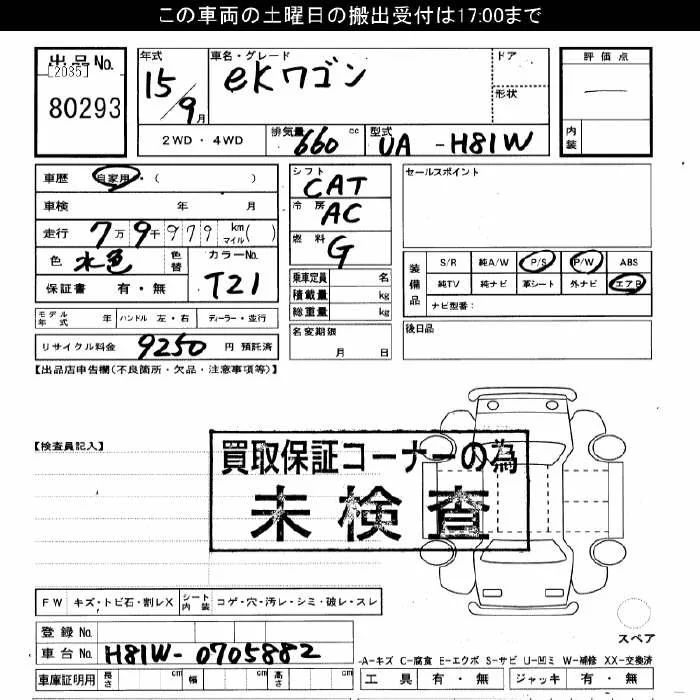 この車両の土曜日の搬出受付は17:00まで
出品No. [2035] 80293
年式 15/9月
車名・グレード eKワゴン
ドア
形状
評価点 —
内装
2WD・4WD 排気量 660 cc 型式 UA -H81W
車歴 自家用・( )
車検 年 月
走行 7万9千979 km マイル( )
色 水色 色替 カラーNo. T21
保証書 有・無
シフト CAT
冷房 AC
燃料 G
乗車定員 名
積載量 kg
総重量 kg
名変期限 月 日
セールスポイント
装備品 S/R 純A/W P/S P/W ABS
純TV 純ナビ 革シート 外ナビ エアB
ナビ型番:
後日品
モデル年式 年 ハンドル 左・右 ディーラー・並行
リサイクル料金 9250 円 預託済
【出品店申告欄(不良箇所・欠品・注意事項等)】
【検査員記入】
買取保証コーナーの為
未検査
FW キズ・トビ石・割レX シート内装 コゲ・穴・汚レ・シミ・破レ・スレ
登録No.
車台No. H81W-0705882
スペア
車庫証明用 長さ cm 幅 cm 高さ cm
-A-キズ C-腐食 E-エクボ S-サビ U-凹ミ W-補修 XX-交換済
工具 有・無 ジャッキ 有・無